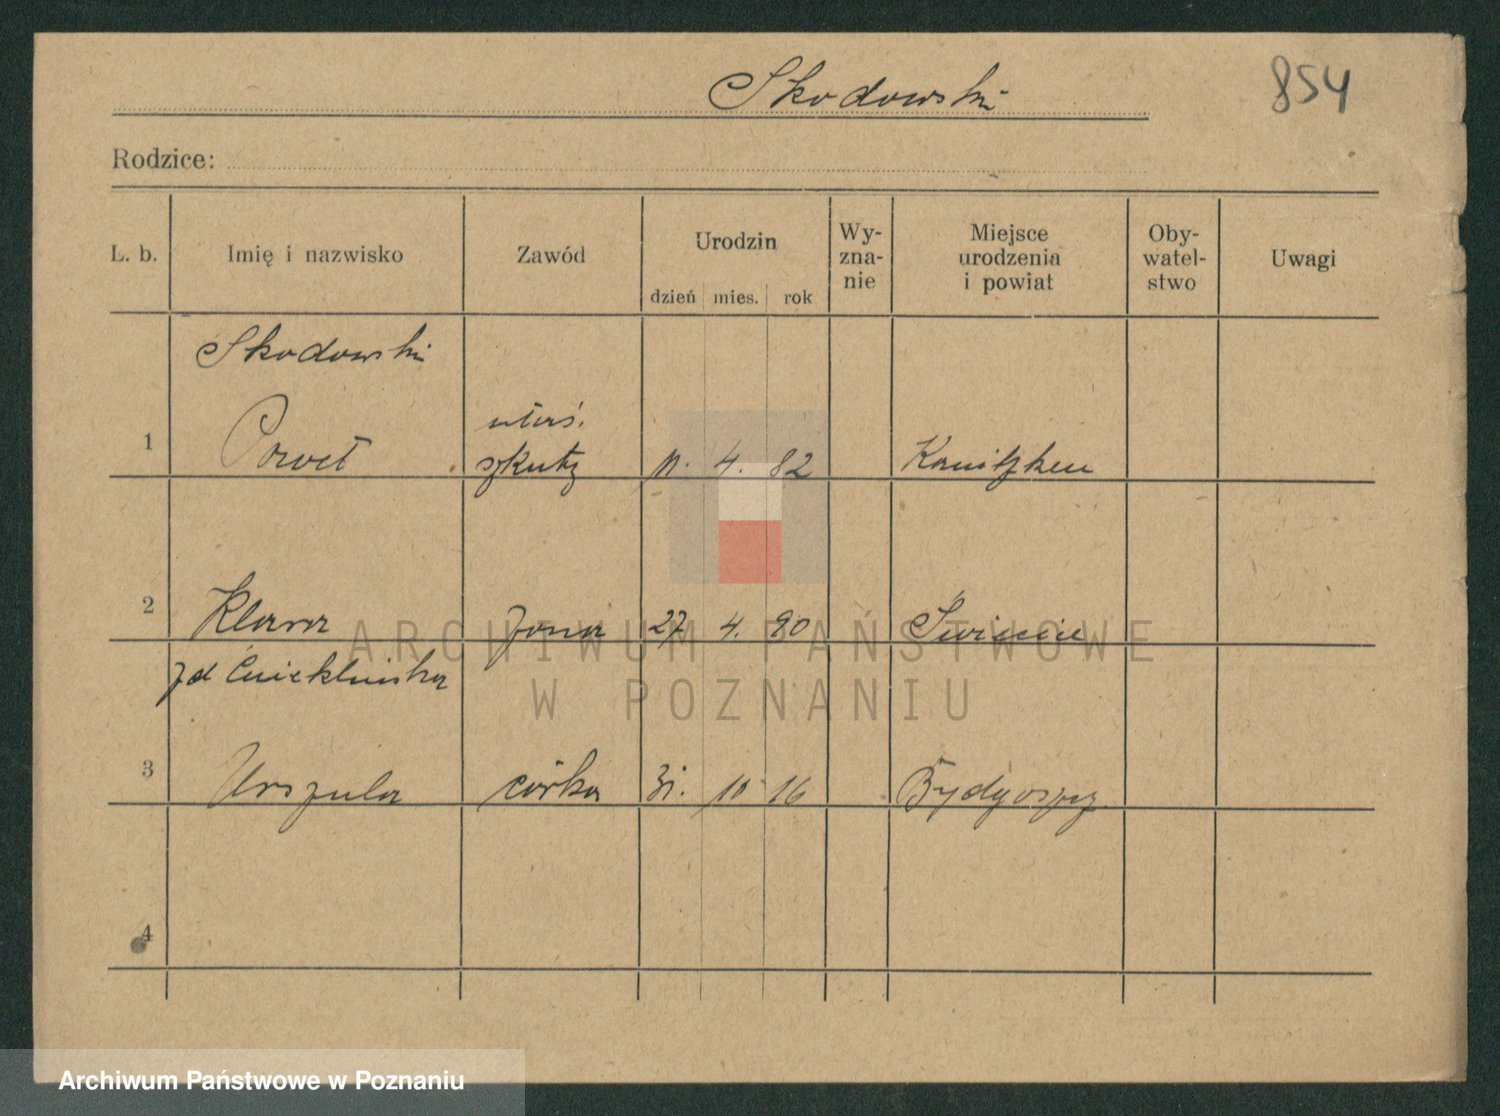 Skodowski
854
Rodzice:
L. b. Imię i nazwisko Zawód Urodzin Wy-znanie Miejsce urodzenia i powiat Oby-watel-stwo Uwagi
dzień mies. rok
Skodowski
1 Paweł właś. szkuty 11. 4. 82 Kanitzken
2 Klara żona 27 4. 90 Świecie
zd Ćwieklińska
3 Urszula córka 31. 10 16 Bydgoszcz
4
ARCHIWUM PAŃSTWOWE
W POZNANIU
Archiwum Państwowe w Poznaniu